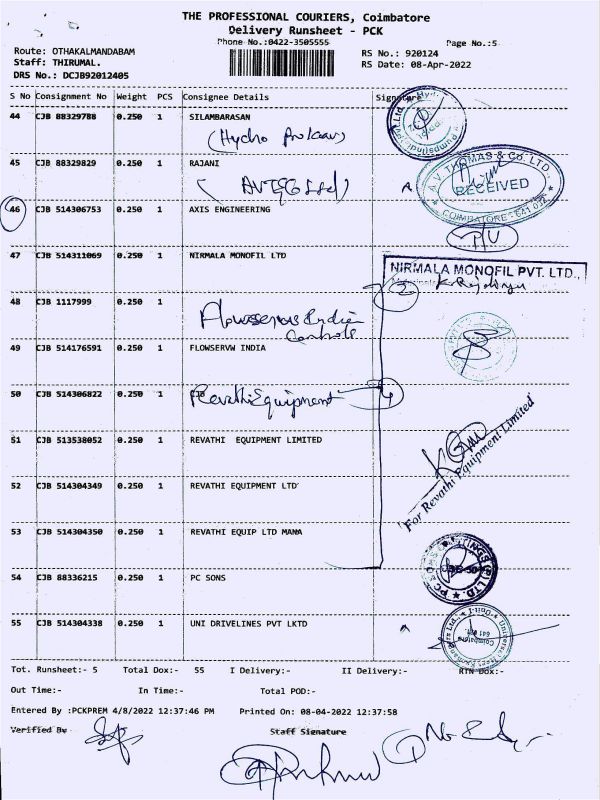 THE PROFESSIONAL COURIERS, Coimbatore
Delivery Runsheet - PCK
Phone No.:0422-3505555
Page No.:5
Route: OTHAKALMANDABAM
RS No.: 920124
Staff: THIRUMAL.
RS Date: 08-Apr-2022
DRS No.: DCJB92012405
S No Consignment No Weight PCS Consignee Details Signature
44 CJB 88329788 0.250 1 SILAMBARASAN
(Hydro
45 CJB 88329829 0.250 1 RAJANI
A.V. THOMAS & CO. LTD.
RECEIVED
COIMBATORE - 641 032
46 CJB 514306753 0.250 1 AXIS ENGINEERING
P/U
47 CJB 514311069 0.250 1 NIRMALA MONOFIL LTD
NIRMALA MONOFIL PVT. LTD.,
2
48 CJB 1117999 0.250 1
Flowserve India
Controls
49 CJB 514176591 0.250 1 FLOWSERVW INDIA
50 CJB 514306822 0.250 1 CJB
Revathi Equipment
4
51 CJB 513538052 0.250 1 REVATHI EQUIPMENT LIMITED
For Revathi Equipment Limited
52 CJB 514304349 0.250 1 REVATHI EQUIPMENT LTD
53 CJB 514304350 0.250 1 REVATHI EQUIP LTD MANA
54 CJB 88336215 0.250 1 PC SONS
55 CJB 514304338 0.250 1 UNI DRIVELINES PVT LKTD
Tot. Runsheet:- 5 Total Dox:- 55 I Delivery:- II Delivery:- RTN Dox:-
Out Time:- In Time:- Total POD:-
Entered By :PCKPREM 4/8/2022 12:37:46 PM Printed On: 08-04-2022 12:37:58
Verified By Staff Signature